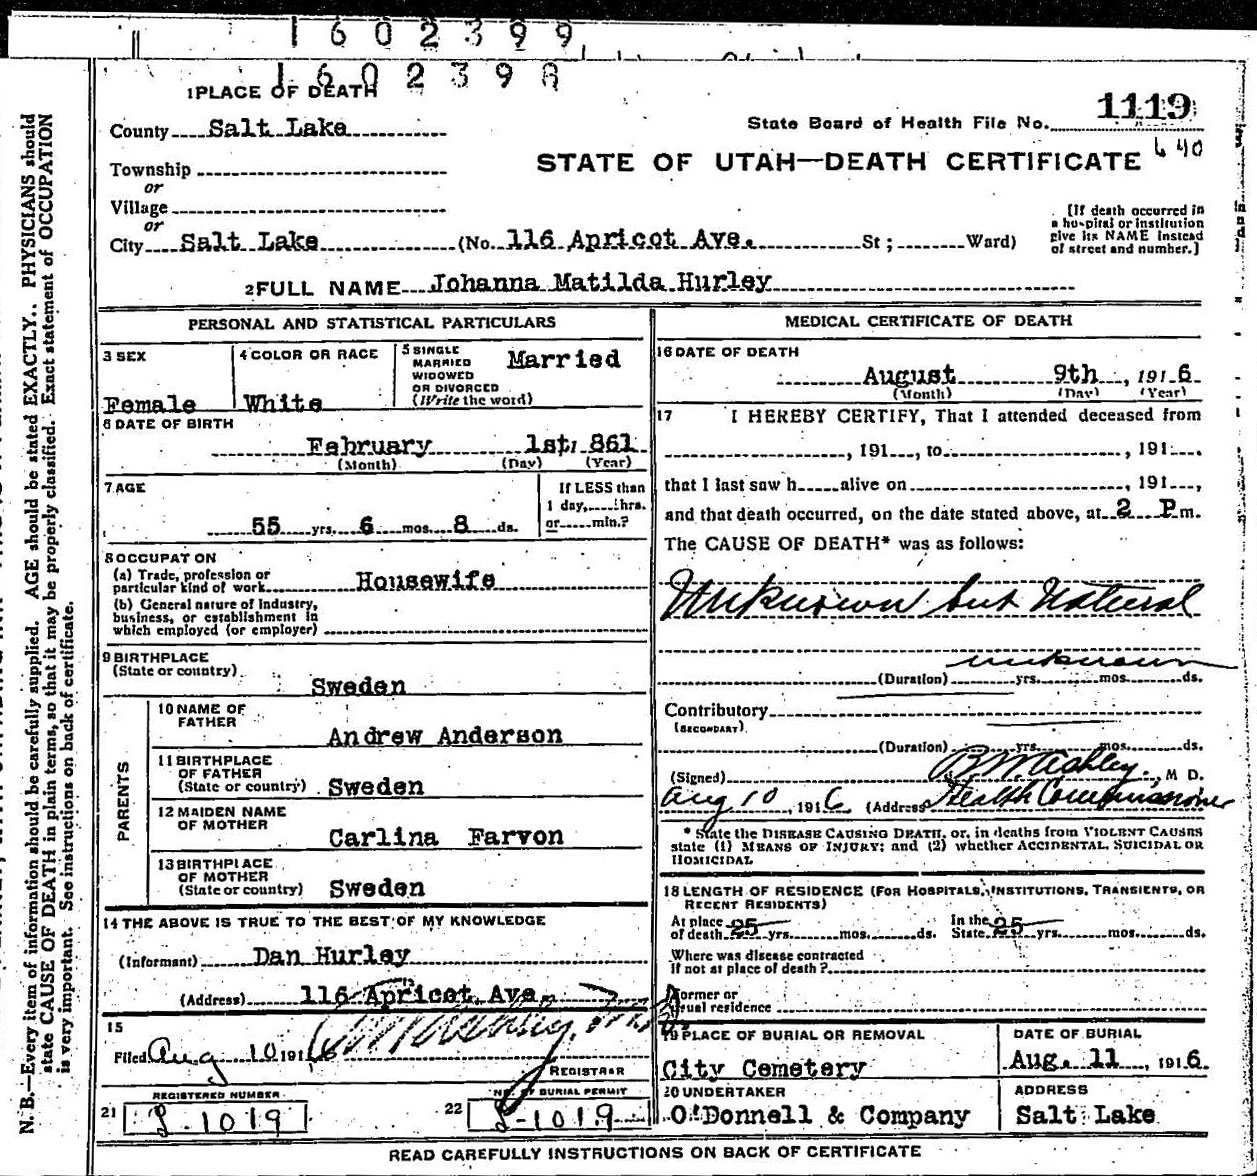 1602399
1602398
1 PLACE OF DEATH
County Salt Lake
State Board of Health File No. 1119
STATE OF UTAH—DEATH CERTIFICATE 640
Township
or
Village
or
City Salt Lake (No. 116 Apricot Ave. St; Ward)
[If death occurred in
a hospital or institution
give its NAME instead
of street and number.]
2 FULL NAME Johanna Matilda Hurley
PERSONAL AND STATISTICAL PARTICULARS
3 SEX
Female
4 COLOR OR RACE
White
5 SINGLE
MARRIED
WIDOWED
OR DIVORCED
(Write the word)
Married
6 DATE OF BIRTH
February 1st, 861
(Month) (Day) (Year)
7 AGE
55 yrs. 6 mos. 8 ds.
If LESS than
1 day, hrs.
or min.?
8 OCCUPATION
(a) Trade, profession or
particular kind of work Housewife
(b) General nature of Industry,
business, or establishment in
which employed (or employer)
9 BIRTHPLACE
(State or country)
Sweden
PARENTS
10 NAME OF
FATHER
Andrew Anderson
11 BIRTHPLACE
OF FATHER
(State or country) Sweden
12 MAIDEN NAME
OF MOTHER
Carlina Farvon
13 BIRTHPLACE
OF MOTHER
(State or country) Sweden
14 THE ABOVE IS TRUE TO THE BEST OF MY KNOWLEDGE
(Informant) Dan Hurley
(Address) 116 Apricot Ave.
15
Filed Aug 10 1916
REGISTRAR
REGISTERED NUMBER
21 S-1019
NO. OF BURIAL PERMIT
22 S-1019
MEDICAL CERTIFICATE OF DEATH
16 DATE OF DEATH
August 9th, 1916
(Month) (Day) (Year)
17 I HEREBY CERTIFY, That I attended deceased from
, 191 , to , 191 ,
that I last saw h alive on , 191 ,
and that death occurred, on the date stated above, at 2 P m.
The CAUSE OF DEATH* was as follows:
Unknown but Natural
unknown
(Duration) yrs. mos. ds.
Contributory
(SECONDARY)
(Duration) yrs. mos. ds.
(Signed) Ashley, M D.
Aug 10, 1916 (Address Health Commissioner
* State the DISEASE CAUSING DEATH, or, in deaths from VIOLENT CAUSES
state (1) MEANS OF INJURY; and (2) whether ACCIDENTAL, SUICIDAL OR
HOMICIDAL
18 LENGTH OF RESIDENCE (FOR HOSPITALS, INSTITUTIONS, TRANSIENTS, OR
RECENT RESIDENTS)
At place
of death 25 yrs. mos. ds.
In the
State 25 yrs. mos. ds.
Where was disease contracted
if not at place of death?
Former or
usual residence
19 PLACE OF BURIAL OR REMOVAL
City Cemetery
DATE OF BURIAL
Aug. 11, 1916
20 UNDERTAKER
O'Donnell & Company
ADDRESS
Salt Lake
READ CAREFULLY INSTRUCTIONS ON BACK OF CERTIFICATE
N. B.—Every item of information should be carefully supplied. AGE should be stated EXACTLY. PHYSICIANS should
state CAUSE OF DEATH in plain terms, so that it may be properly classified. Exact statement of OCCUPATION
is very important. See instructions on back of certificate.